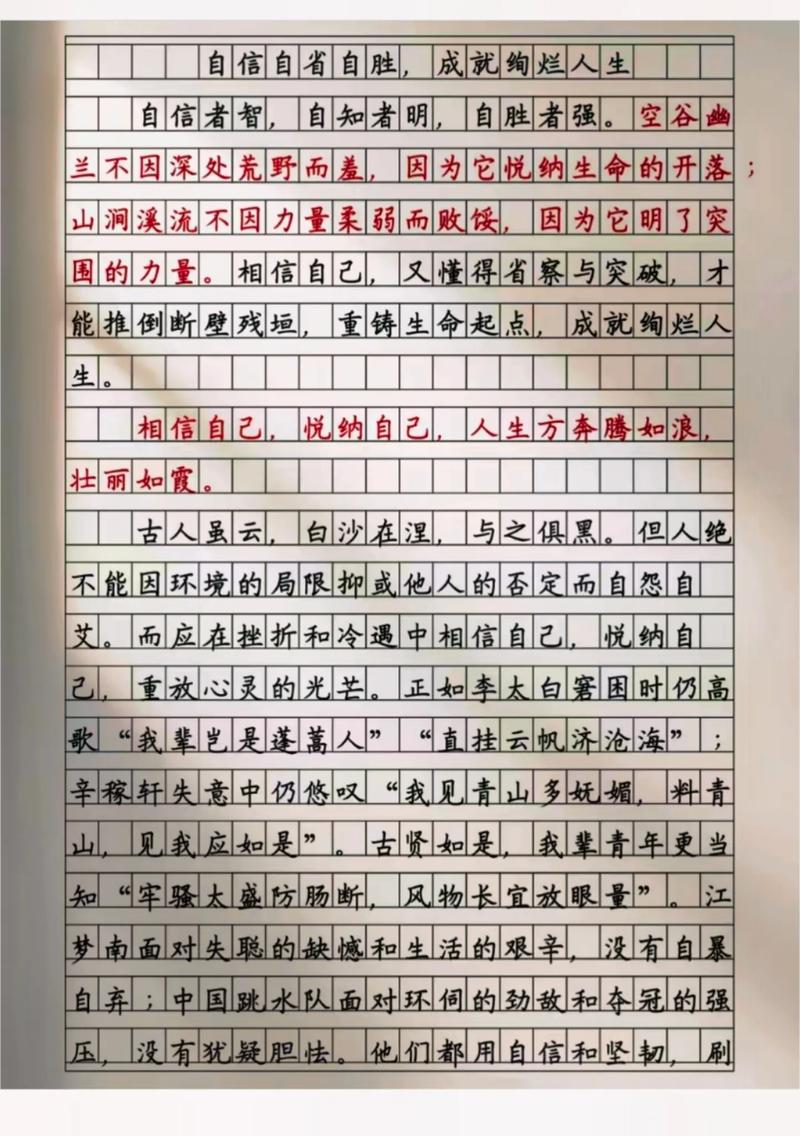 自信自省自胜，成就绚烂人生
自信者智，自知者明，自胜者强。空谷幽
兰不因深处荒野而羞，因为它悦纳生命的开落；
山涧溪流不因力量柔弱而败馁，因为它明了突
围的力量。相信自己，又懂得省察与突破，才
能推倒断壁残垣，重铸生命起点，成就绚烂人
生。
相信自己，悦纳自己，人生方奔腾如浪，
壮丽如霞。
古人虽云，白沙在涅，与之俱黑。但人绝
不能因环境的局限抑或他人的否定而自怨自
艾。而应在挫折和冷遇中相信自己，悦纳自
己，重放心灵的光芒。正如李太白窘困时仍高
歌“我辈岂是蓬蒿人”“直挂云帆济沧海”；
辛稼轩失意中仍悠叹“我见青山多妩媚，料青
山，见我应如是”。古贤如是，我辈青年更当
知“牢骚太盛防肠断，风物长宜放眼量”。江
梦南面对失聪的缺憾和生活的艰辛，没有自暴
自弃；中国跳水队面对环伺的劲敌和夺冠的强
压，没有犹疑胆怯。他们都用自信和坚韧，刷